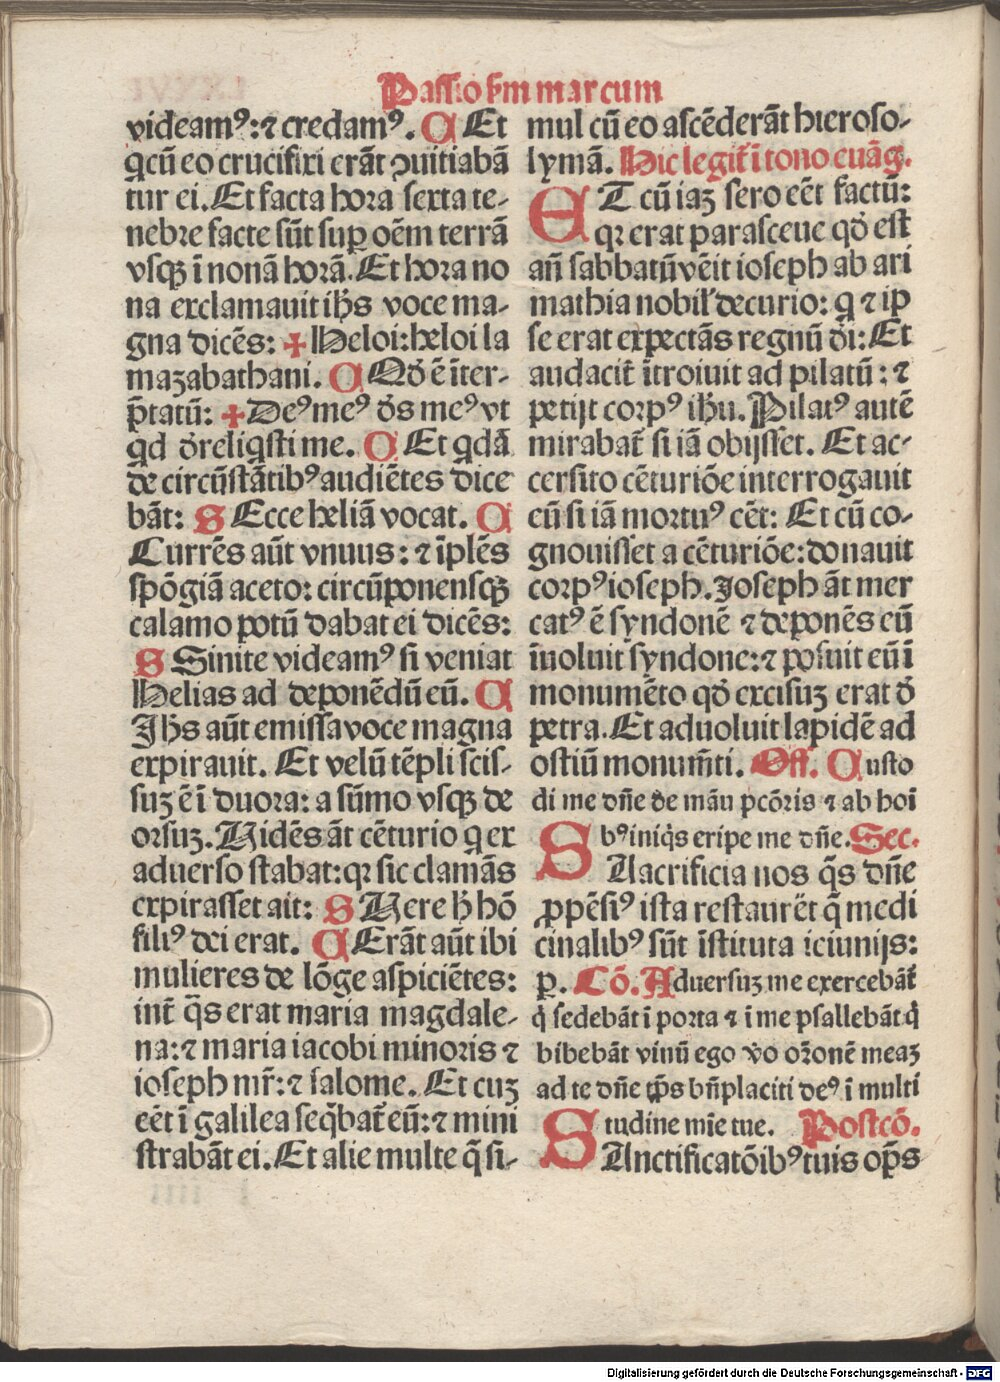 Passio ẜm marcum
videamꝰ: ⁊ credamꝰ. C Et
q̇ cū eo crucifixi erāt ꝯuitiabā
tur ei. Et facta hora sexta te-
nebre facte sūt suꝑ oēm terrā
vsqꝫ ī nonā horā. Et hora no
na exclamauit ihs̄ voce ma-
gna dicēs: + Heloi: heloi la
mazabathani. C Qđ ē īter-
p̄tatū: + Deꝰ meꝰ đs meꝰ vt
qd đreliq̇sti me. C Et q̇dā
de circūstātibꝰ audiētes dice
bāt: S Ecce heliā vocat. C
Currēs aūt vnuus: ⁊ īplēs
spōgiā aceto: circūponensqꝫ
calamo potū dabat ei dicēs:
S Sinite videamꝰ si veniat
Helias ad deponēdū eū. C
Ihs̄ aūt emissa voce magna
expirauit. Et velū tēpli scis-
suꝫ ē ī duora: a sūmo vsqꝫ de
orsuꝫ. Uidēs āt cēturio q̇ ex
aduerso stabat: qꝛ sic clamās
expirasset ait: S Uere hˀ hō
filiꝰ dei erat. C Erāt aūt ibi
mulieres de lōge aspiciētes:
int̄ q̄s erat maria magdale-
na: ⁊ maria iacobi minoris ⁊
ioseph mr̄: ⁊ salome. Et cuꝫ
eēt ī galilea seq̄bat̄ eū: ⁊ mini
strabāt ei. Et alie multe q̄ si-
mul cū eo ascēderāt hieroso-
lymā. Hic legit̄ ī tono euāg.
ET cū iaꝫ sero eēt factū:
qꝛ erat parasceue qđ est
añ sabbatū vēit ioseph ab ari
mathia nobil̓ decurio: q̇ ⁊ ip
se erat expectās regnū đi: Et
audacit̄ ītroiuit ad pilatū: ⁊
petijt corpꝰ ihu. Pilatꝰ autē
mirabat̄ si iā obijsset. Et ac-
cersito cēturiōe interrogauit
eū si iā mortuꝰ eēt: Et cū co-
gnouisset a cēturiōe: donauit
corpꝰ ioseph. Joseph āt mer
catꝰ ē syndonē ⁊ deponēs eū
iuoluit syndone: ⁊ posuit eū ī
monumēto qđ excisuꝫ erat đ
petra. Et aduoluit lapidē ad
ostiū monum̄ti. Off. Custo
di me dn̄e de māu pcōris ⁊ ab hoī
bꝰ iniq̇s eripe me dn̄e. Sec.
SAacrificia nos q̄s dn̄e
ꝓpēsiꝰ ista restaurēt q̄ medi
cinalibꝰ sūt īstituta ieiunijs:
ꝑ. Cō. Aduersuꝫ me exercebāt̄
q̇ sedebāt ī porta ⁊ ī me psallebāt q̇
bibebāt vinū ego v̊o or̄onē meaꝫ
ad te dn̄e tp̄s bn̄placiti deꝰ ī multi
tudine mīe tue. Postcō.
SAnctificatōibꝰ tuis op̄s
Digitalisierung gefördert durch die Deutsche Forschungsgemeinschaft - DFG